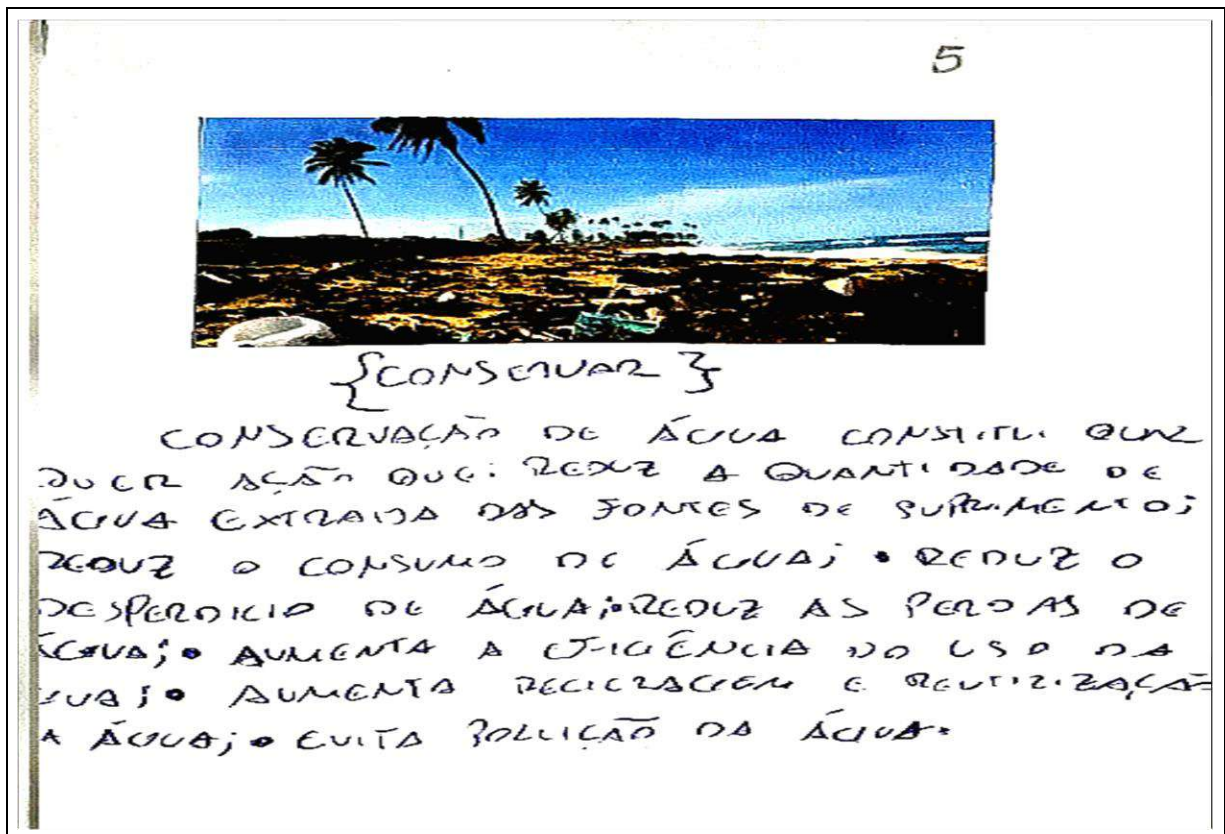 5
{CONSERVAR}
CONSERVAÇÃO DE ÁGUA CONSTITUI QUAL
QUER AÇÃO QUE: REDUZ A QUANTIDADE DE
ÁGUA EXTRAIDA DAS FONTES DE SUPRIMENTO;
REDUZ O CONSUMO DE ÁGUA; • REDUZ O
DESPERDICIO DE ÁGUA; • REDUZ AS PERDAS DE
ÁGUA; • AUMENTA A EFICIÊNCIA DO USO DA
GUA; • AUMENTA RECICLAGEM E REUTILIZAÇÃO
A ÁGUA; • EVITA POLUIÇÃO DA ÁGUA.